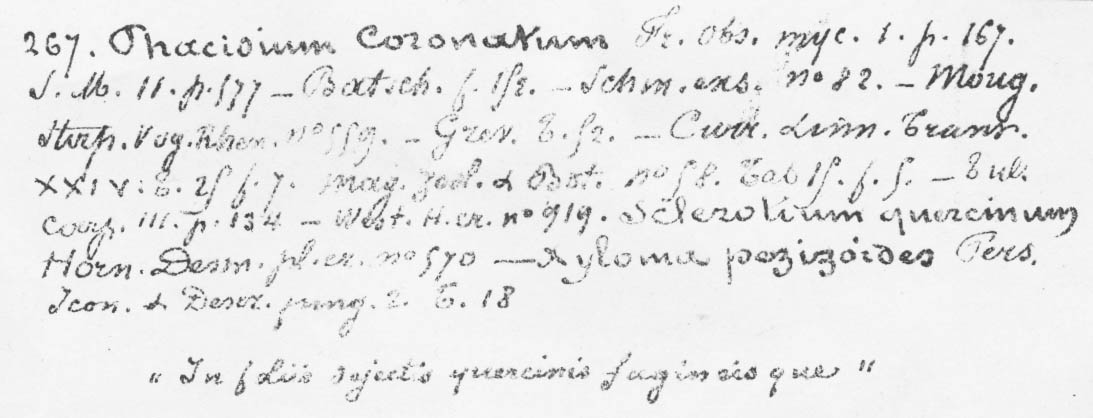 267. Phacidium Coronatum Fr. Obs. myc. 1. p. 167.
S. M. 11. p. 577 – Batsch. f. 152. – Schm. exs. no 82. – Moug.
Stirp. Vog. Rhen. no 559. – Grev. t. 52. – Curr. Linn. Trans.
XXIV: t. 25 f. 7. Mag. Zool. & Bot. no 58. Tab 15. f. 5. – Tul.
Carp. III. p. 134 – West. H. cr. no 919. Sclerotium quercinum
Horn. Desm. pl. cr. no 570 – Xyloma pezizoides Pers.
Icon. & Descr. fung. 2. t. 18
" In foliis dejectis quercinis fagineisque "